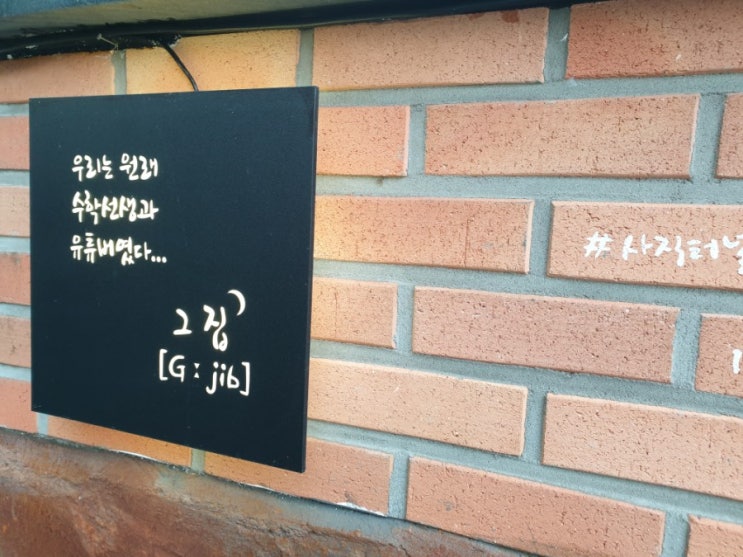 우리는 원래
수학선생과
유튜버였다...
그 집
[G : jib]
# 사직터널